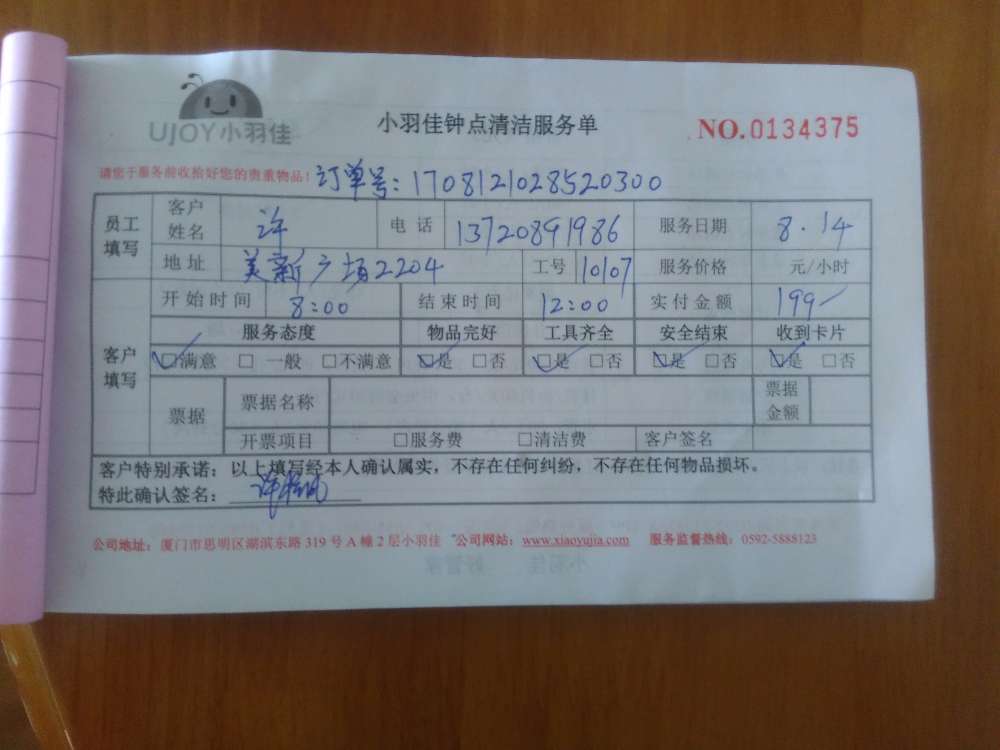 UJOY小羽佳
小羽佳钟点清洁服务单
NO.0134375
请您于服务前收拾好您的贵重物品！
订单号：1708121028520300
员工填写 客户姓名 许 电话 13720891986 服务日期 8.14
地址 美新广场2204 工号 10107 服务价格 元/小时
客户填写 开始时间 8:00 结束时间 12:00 实付金额 199
服务态度 物品完好 工具齐全 安全结束 收到卡片
☑满意 □ 一般 □不满意 ☑是 □否 ☑是 □否 ☑是 □否 ☑是 □否
票据 票据名称 票据金额
开票项目 □服务费 □清洁费 客户签名
客户特别承诺：以上填写经本人确认属实，不存在任何纠纷，不存在任何物品损坏。
特此确认签名：
公司地址：厦门市思明区湖滨东路 319 号 A 幢 2 层小羽佳 公司网站：www.xiaoyujia.com 服务监督热线：0592-5888123